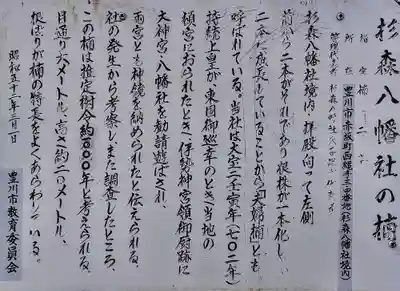 杉森八幡社の楠
指定 楠 二本
所在 豊川市赤坂町西縄手三四番地(杉森八幡社境内)
杉森八幡社境内・拝殿向って左側
二本に成長していることから夫婦楠とも
呼ばれている。当社は大宝二壬寅年(七〇二年)
持統上皇が東国御巡幸のとき、当地の
頓宮におられたとき、伊勢神宮領御厨跡に
大神宮・八幡社を勧請遊ばされ、
両宮とも神鏡を納められたと伝えられる。
社の発生から考察し、また調査したところ、
この楠は推定樹令約一、〇〇〇年と考えられる。
目通り六メートル、高さ約二〇メートル、
根ばりが楠の特長をよくあらわしている。
昭和五十二年三月一日
豊川市教育委員会